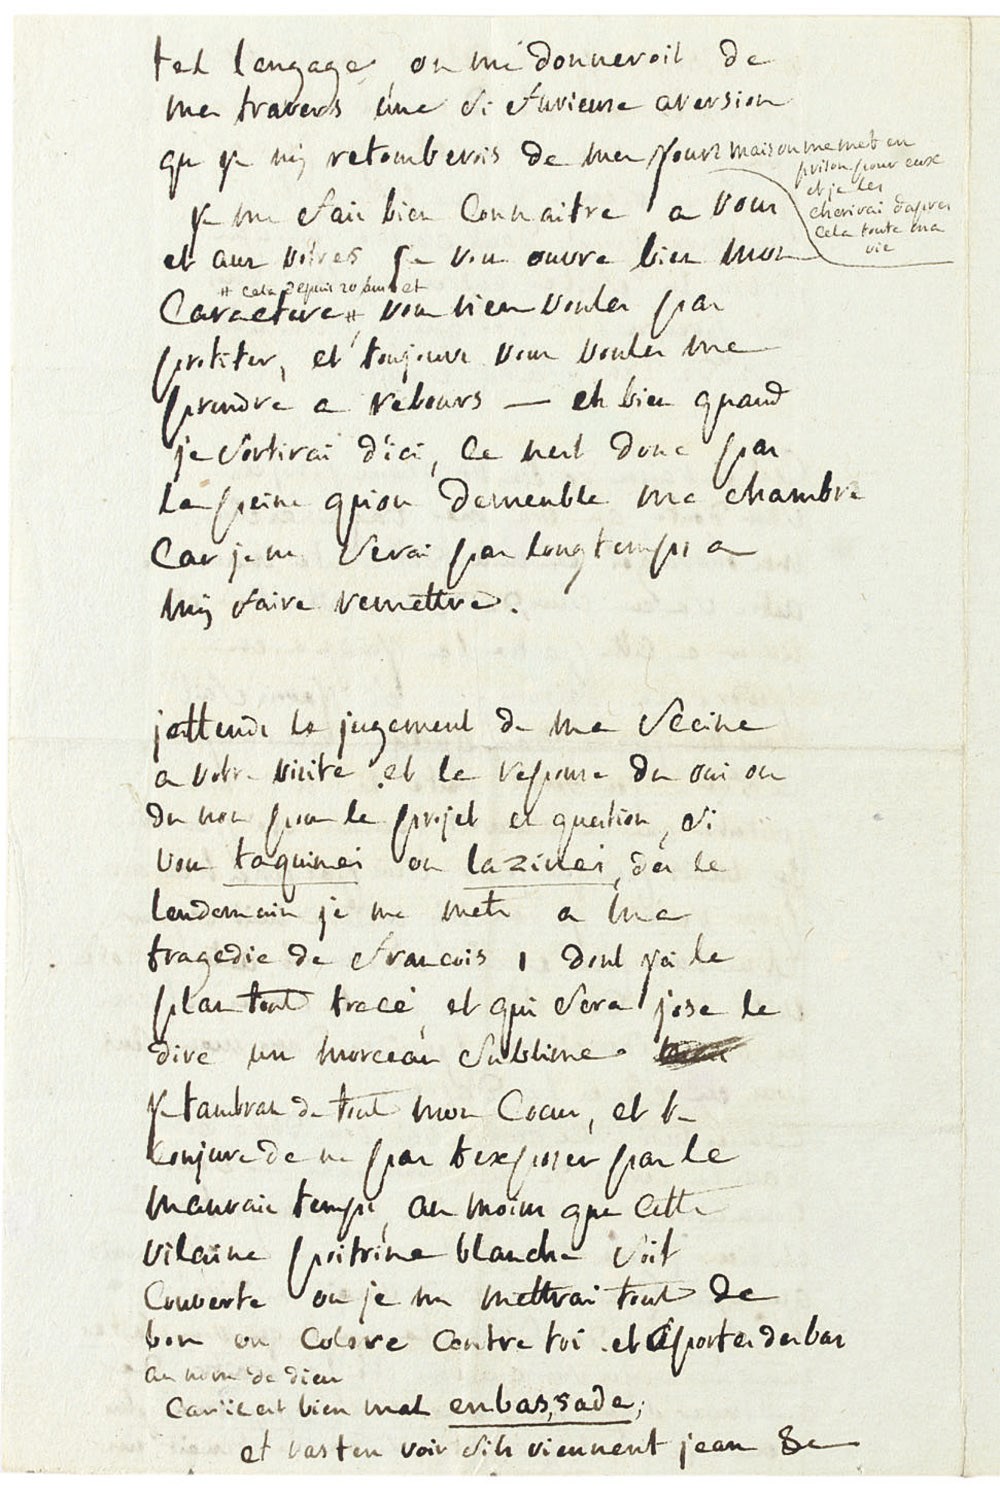 tel langage, on me donneroit de
mes travers une si furieuse aversion
que je n'y retomberois de mes jours mais on me met en
prison pour eux
et je les
cherirai d'apres
cela toute ma
vie
je me fais bien connaitre a vous
et aux votres je vous ouvre bien mon
# cela depuis 20 ans et
Caractere #, vous n'en voules pas
profiter, et toujours vous voules me
prendre a rebours — eh bien quand
je sortirai d'ici, ce nest donc pas
la peine qu'on demeuble ma chambre
Car je ne serai pas longtemps a
my faire remettre.
jattends le jugement de ma
a votre visite et la reponse du oui ou
du non pour le projet en question, si
vous taquinei ou lazinei, des le
lendemain je me mets a ma
tragedie de francois 1 dont j'ai le
plan tout tracé, et qui sera jose le
dire un morceau sublime.
je tambrasse de tout mon Coeur, et te
Conjure de ne pas t'exposer par le
mauvais temps, au moins que cette
vilaine poitrine blanche soit
Couverte ou je me mettrai tout de
bon en Colere Contre toi. et portes des bas
au nom de dieu
Car il est bien mal enbas,sade,
et vas ten voir s'ils viennent jean &c